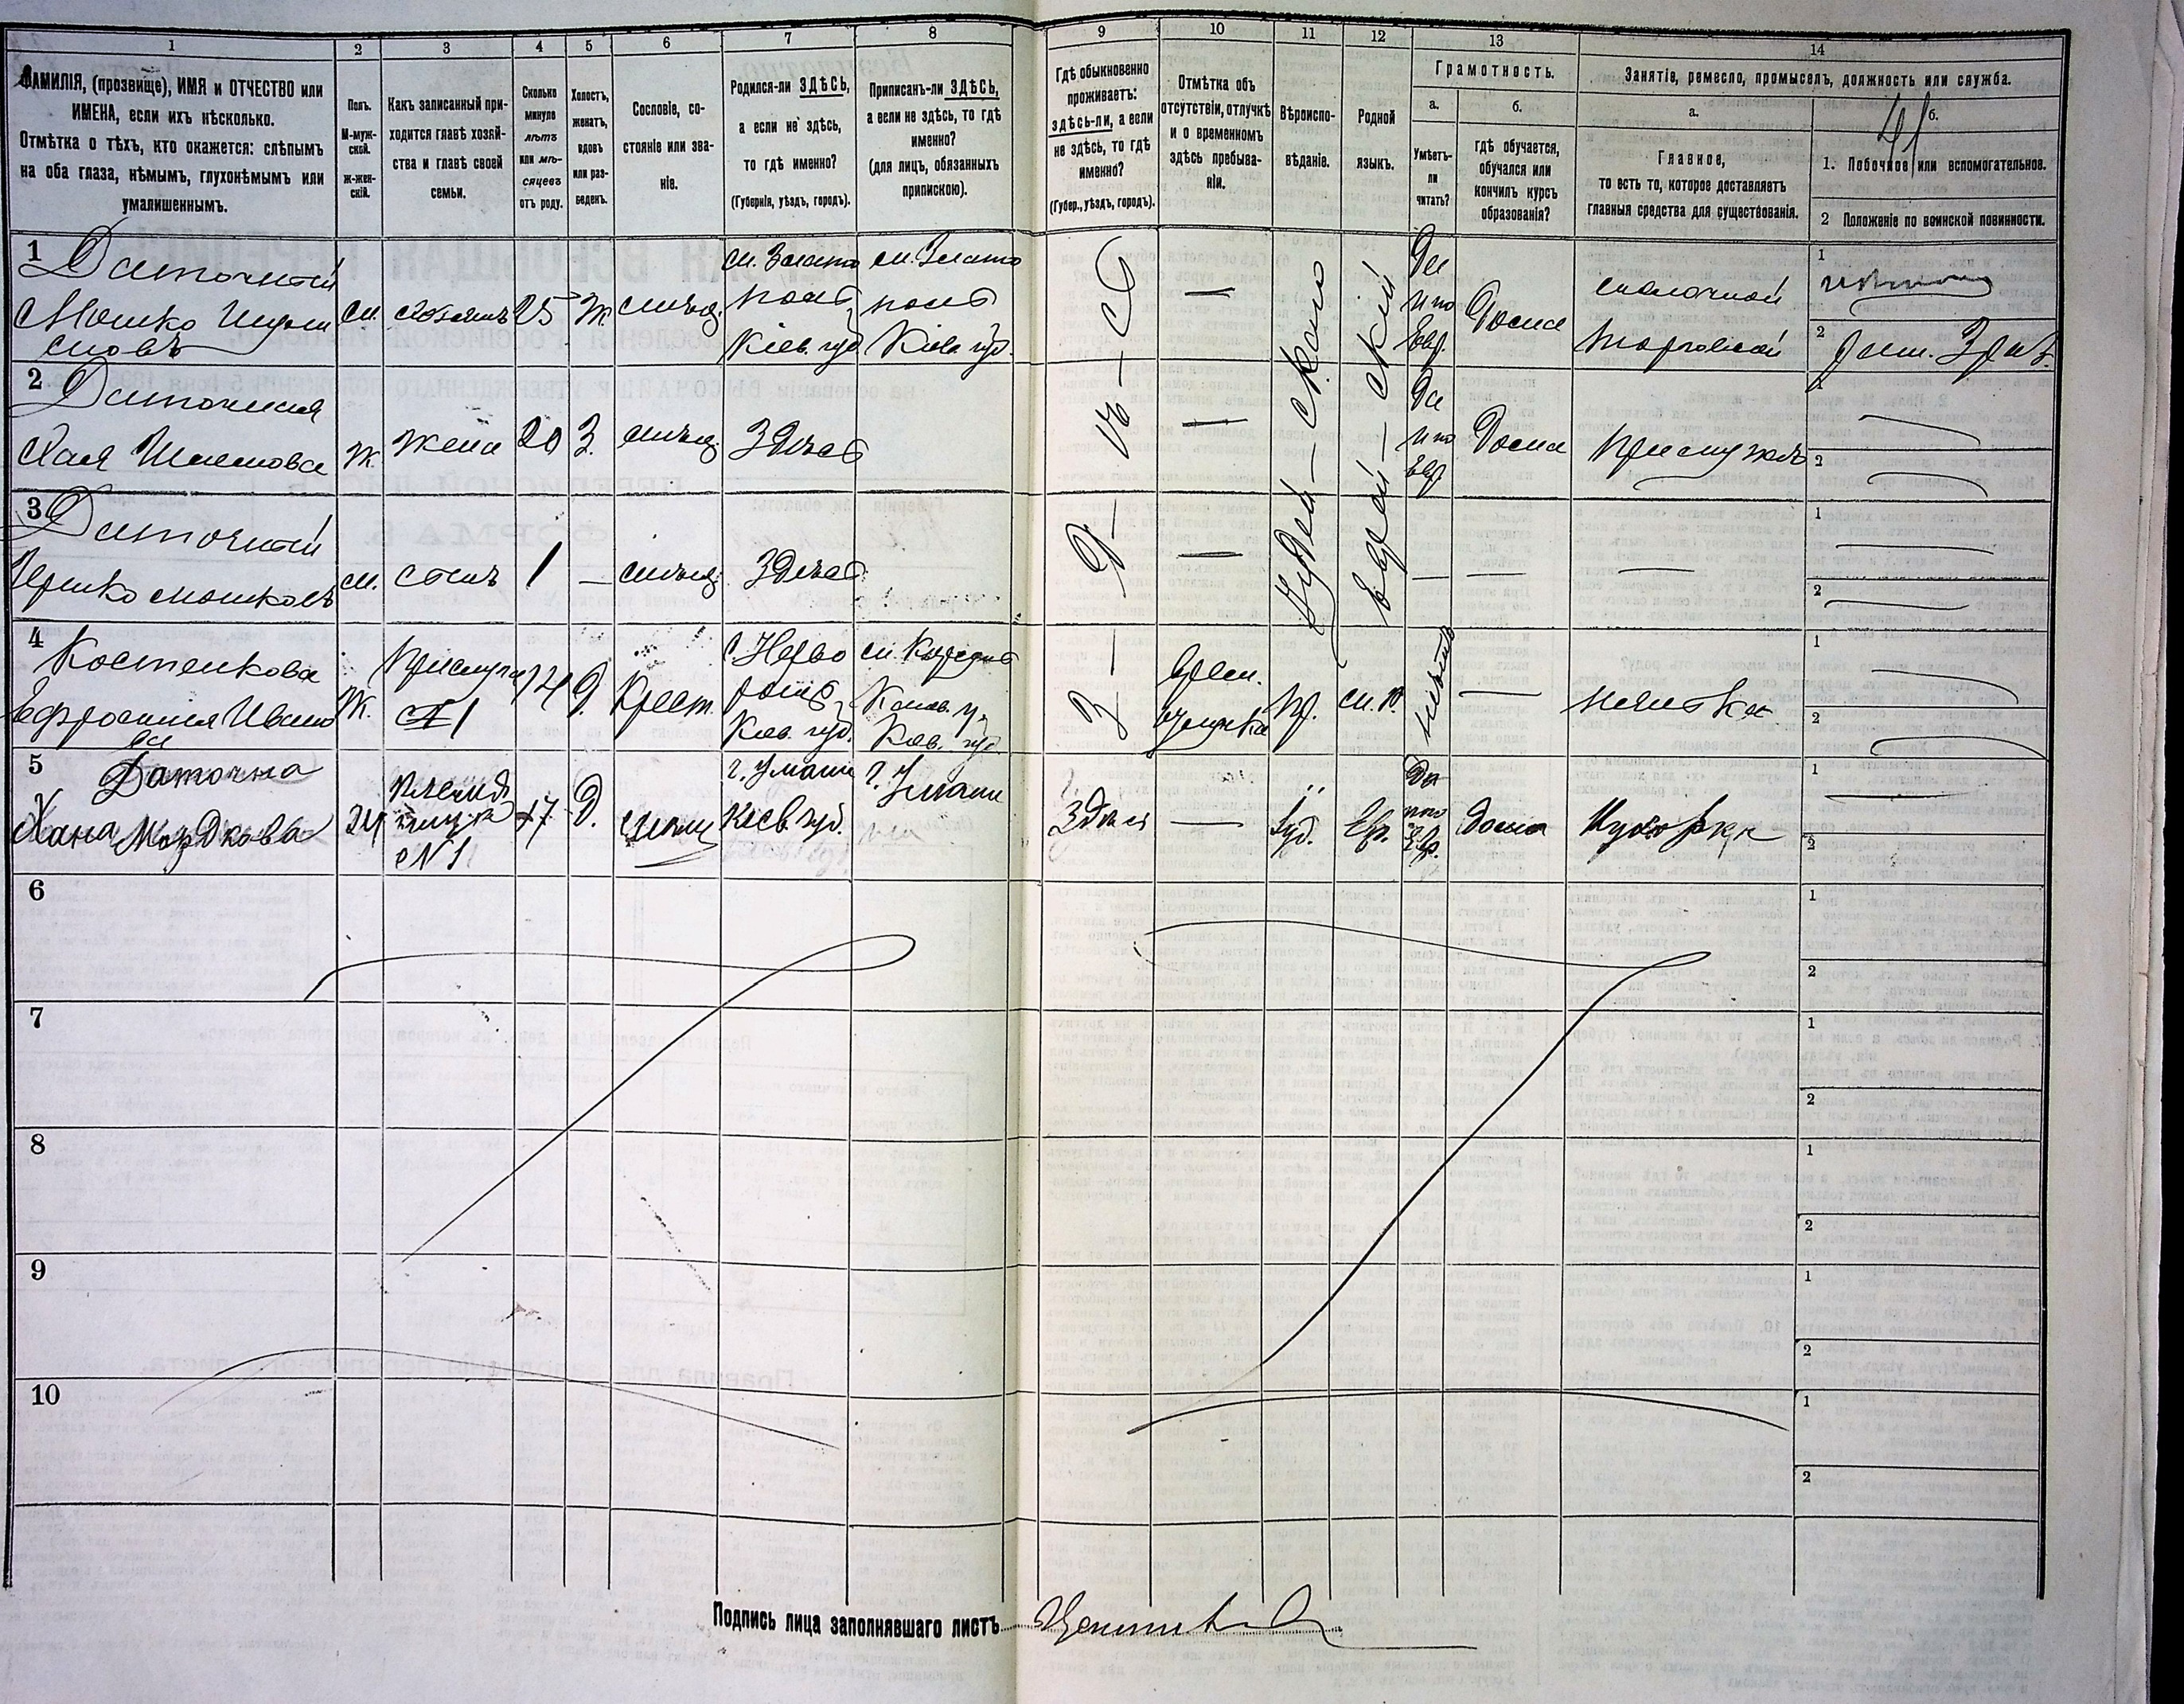 1 2 3 4 5 6 7 8 9 10 11 12 13 14
ФАМИЛІЯ, (прозвище), ИМЯ и ОТЧЕСТВО или
ИМЕНА, если ихъ нѣсколько.
Отмѣтка о тѣхъ, кто окажется: слѣпымъ
на оба глаза, нѣмымъ, глухонѣмымъ или
умалишеннымъ.
Полъ.
М-муж-
ской.
Ж-жен-
скій.
Какъ записанный при-
ходится главѣ хозяй-
ства и главѣ своей
семьи.
Сколько
минуло
лѣтъ
или мѣ-
сяцевъ
отъ роду.
Холостъ,
женатъ,
вдовъ
или раз-
веденъ.
Сословіе, со-
стояніе или зва-
ніе.
Родился-ли ЗДѢСЬ,
а если не здѣсь,
то гдѣ именно?
(Губернія, уѣздъ, городъ).
Приписанъ-ли ЗДѢСЬ,
а если не здѣсь, то гдѣ
именно?
(для лицъ, обязанныхъ
припискою).
Гдѣ обыкновенно
проживаетъ:
здѣсь-ли, а если
не здѣсь, то гдѣ
именно?
(Губер., уѣздъ, городъ).
Отмѣтка объ
отсутствіи, отлучкѣ
и о временномъ
здѣсь пребыва-
ніи.
Вѣроиспо-
вѣданіе.
Родной
языкъ.
Грамотность.
а.
Умѣетъ-
ли
читать?
б.
гдѣ обучается,
обучался или
кончилъ курсъ
образованія?
Занятіе, ремесло, промыселъ, должность или служба.
а.
Главное,
то есть то, которое доставляетъ
главныя средства для существованія.
41
б.
1. Побочное или вспомогательное.
2 Положеніе по воинской повинности.
1
Даточный
Мошко
м.
хозяинъ
25
ж.
мѣщ.
м. Злато
поль
Кіев. губ.
м. Злато
поль
Кіев. губ.
Здѣсь
—
Іудейскаго
Еврейскій
Да
и по
Евр.
Дома
торговлей
1
2
2
Даточная
Хая
ж.
жена
20
З.
мѣщ.
Здѣсь
—
Да
и по
Евр.
Дома
1
2
3
Даточный
Гершко Мошковъ
м.
сынъ
1
—
мѣщ.
Здѣсь
—
—
—
—
1
2
4
Костенкова
Ефросинія Ивано
ва
ж.
прислуга
1
Д.
Крест.
Кіев. губ.
Канев. у.
Кіев. губ.
врем.
отлучка
Пр.
м. р.
неѣтъ
—
1
2
5
Даточна
Хана Мордкова
№1
17
Д.
г. Умани
Кіев. губ.
г. Умани
Здѣсь
—
Іуд.
Евр.
Да
и по
Евр.
дома
Кухарка
1
2
6
1
2
7
1
2
8
1
2
9
1
2
10
1
2
Подпись лица заполнявшаго листъ